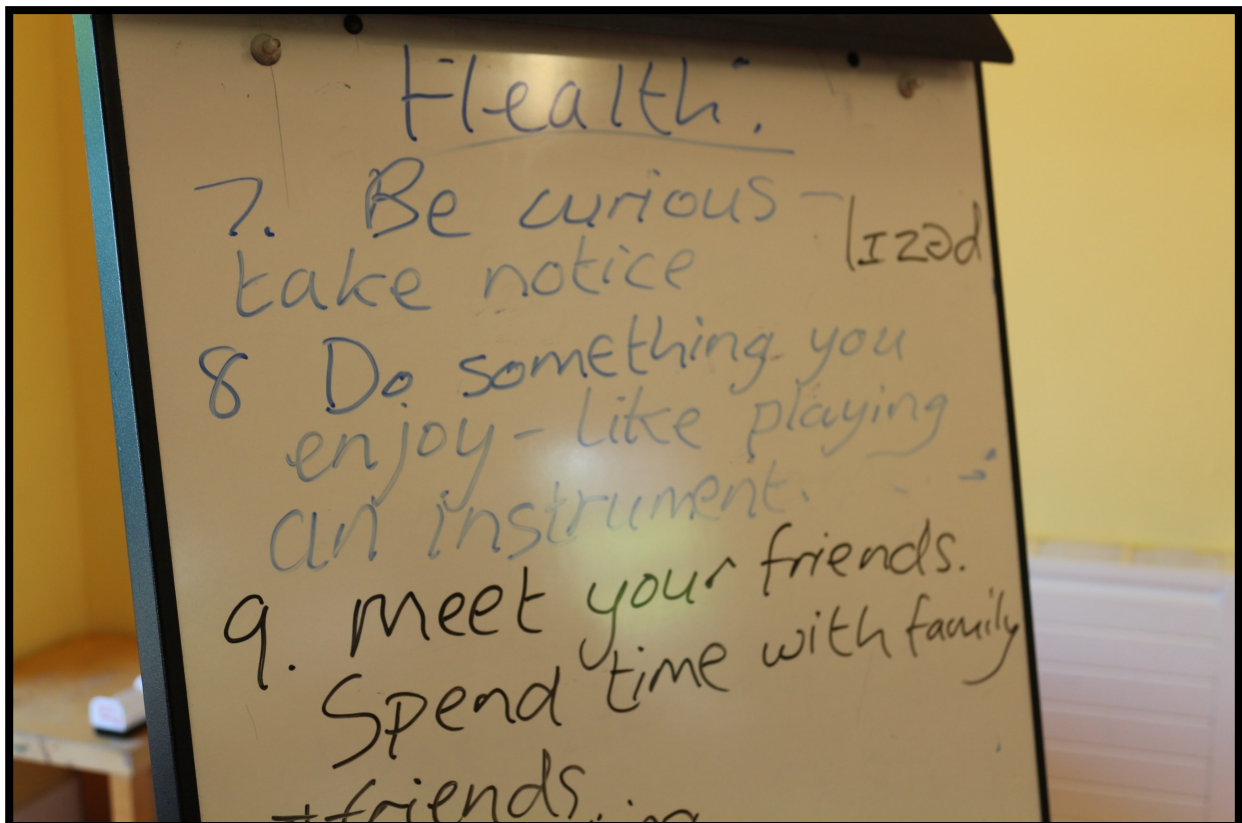 Health.
7. Be curious -
lızəd
take notice
8 Do something you
enjoy - like playing
an instrument.
9. Meet your friends.
Spend time with family
+ friends.